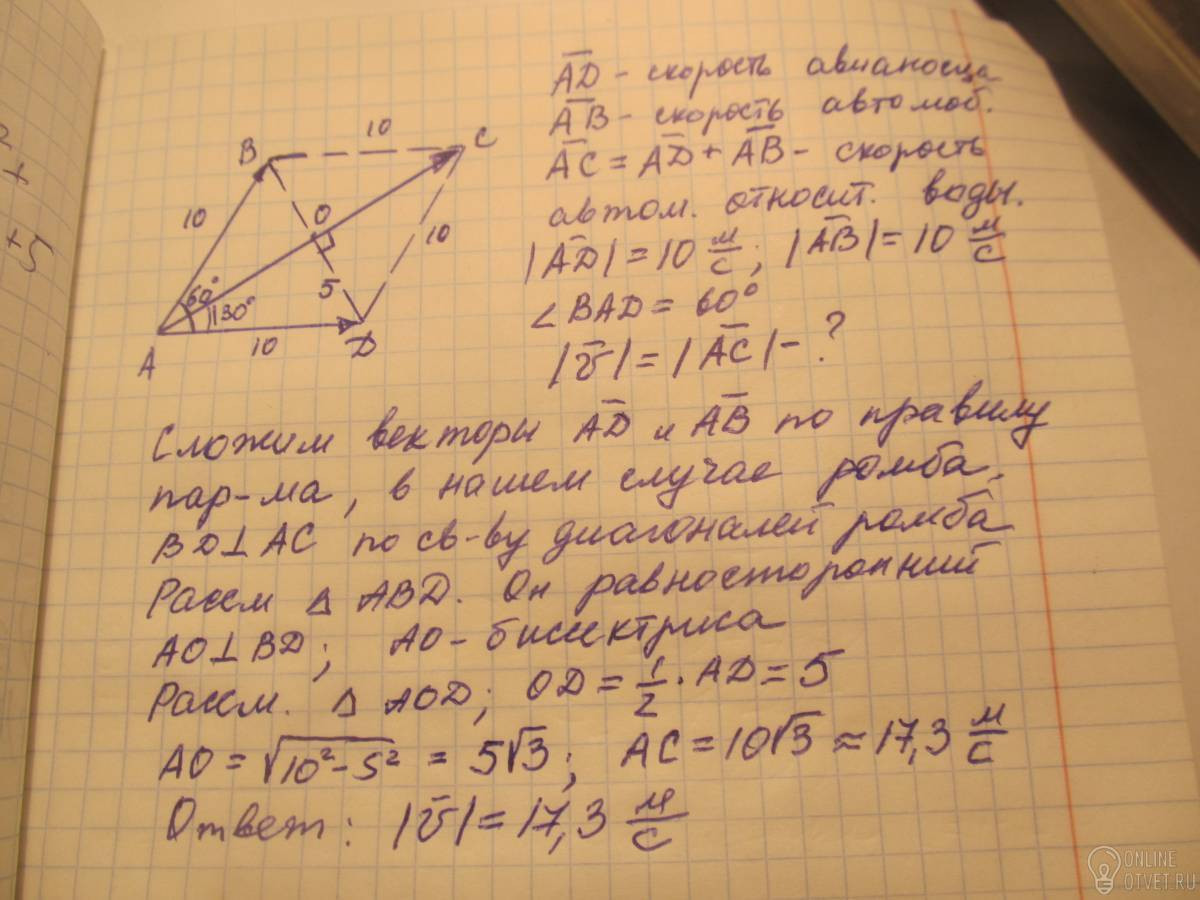 2
+
+5
B
10
C
10
O
10
60°
30°
5
A
10
D
A̅D̅ - скорость авианосца
A̅B̅ - скорость автомоб.
A̅C̅ = A̅D̅ + A̅B̅ - скорость
автом. относит. воды.
|A̅D̅| = 10 м/с; |A̅B̅| = 10 м/с
∠BAD = 60°
|v̅| = |A̅C̅| - ?
Сложим векторы A̅D̅ и A̅B̅ по правилу
пар-ма, в нашем случае ромба.
BD⊥AC по св-ву диагоналей ромба
Рассм △ ABD. Он равносторонний
AO⊥BD; AO - биссектриса
Рассм. △ AOD; OD = 1/2 · AD = 5
AO = √(10² - 5²) = 5√3; AC = 10√3 ≈ 17,3 м/с
Ответ: |v̅| = 17,3 м/с
ONLINE
OTVET.RU